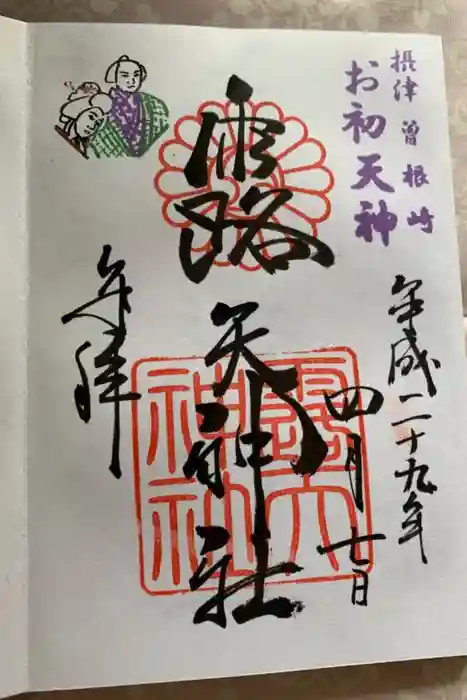 摂津 曽根崎
お初天神
平成二十九年
四月七日
露天神社
奉拝
露天
神社